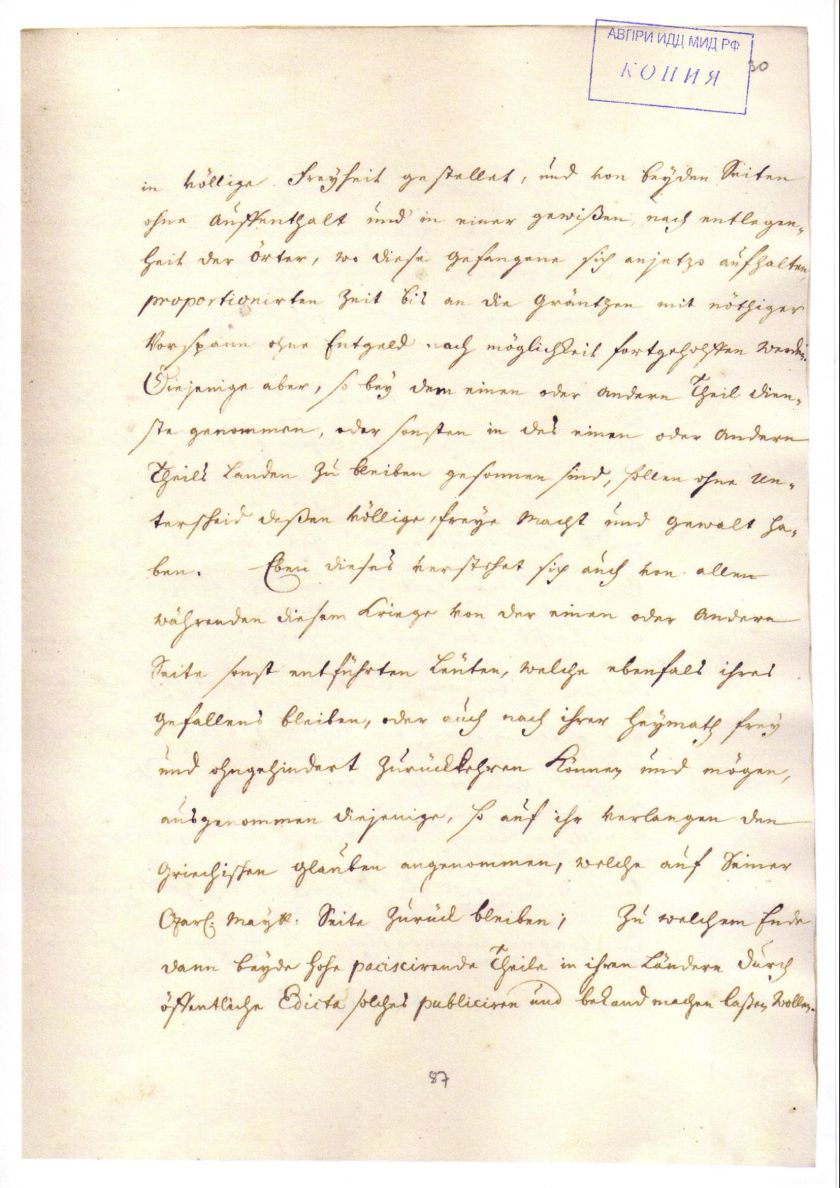 АВПРИ ИДД МИД РФ
КОПИЯ
30
in völlige Freyheit gestellet, und von beyden Seiten
ohne Auffenthalt und in einer gewißen, nach entlegen-
heit der Örter, wo diese Gefangene sich anjetzo aufhalten
proportionirten Zeit bis an die Gräntzen mit nöthiger
Vorspann ohne Entgeld nach möglichkeit fortgeholffen werden.
Diejenige aber, so bey dem einen oder andern Theil dien-
ste genommen, oder sonsten in des einen oder andern
Theils Landen zu bleiben gesonnen sind, sollen ohne un-
terscheid deßen völlige, freye Macht und gewalt ha-
ben. Eben dieses verstehet sich auch von allen
währenden diesem Kriege von der einen oder andern
Seite sonst entführten Leüten, welche ebenfals ihres
gefallens bleiben, oder auch nach ihrer Heymath frey
und ohngehindert zurückkehren können und mögen,
ausgenommen diejenige, so auf ihr verlangen den
Griechischen Glauben angenommen, welche auf Seiner
Czarl. Maytt. Seite zurück bleiben; Zu welchem Ende
dann beyde hohe paciscirende Theile in ihren Ländern durch
öffentliche Edicta solches publiciren und bekand machen laßen wollen.
87